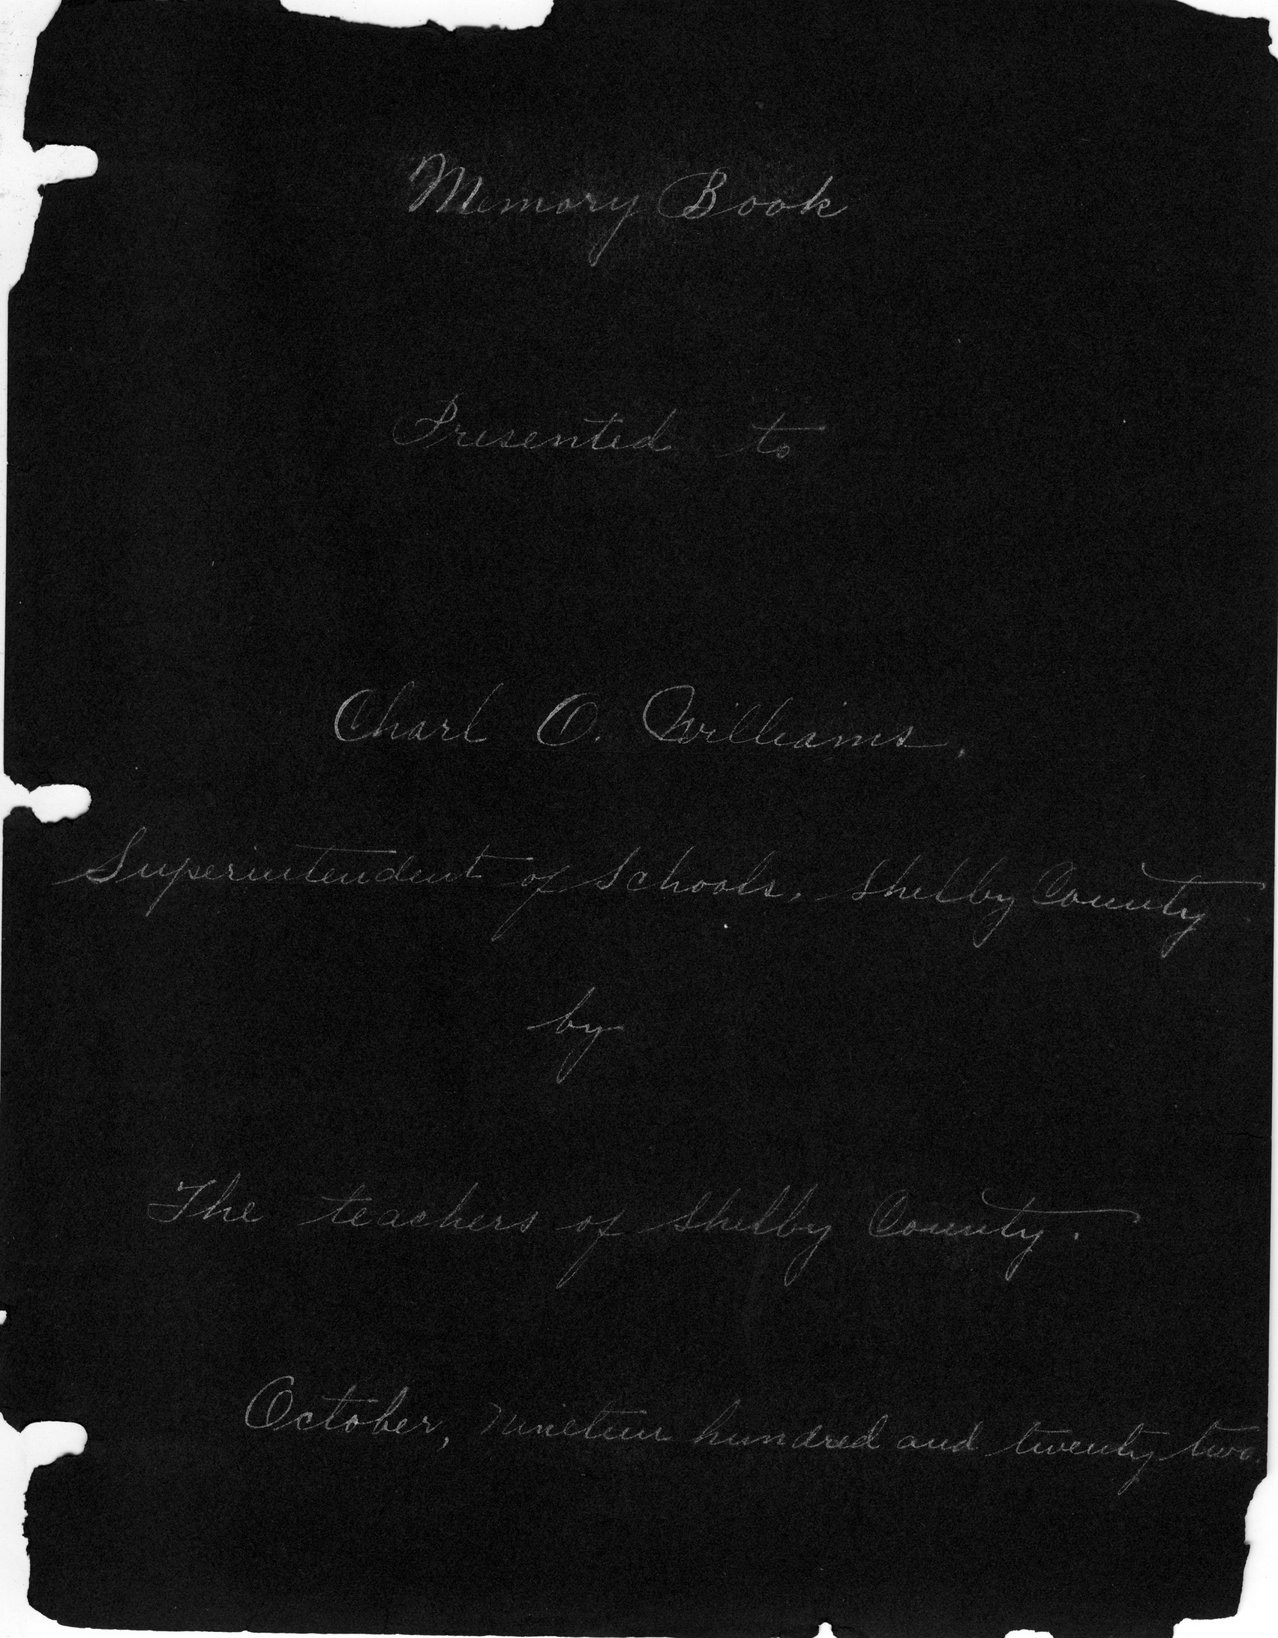 Memory Book
Presented to
Charl O. Williams,
Superintendent of Schools, Shelby County
by
The teachers of Shelby County.
October, nineteen hundred and twenty two.